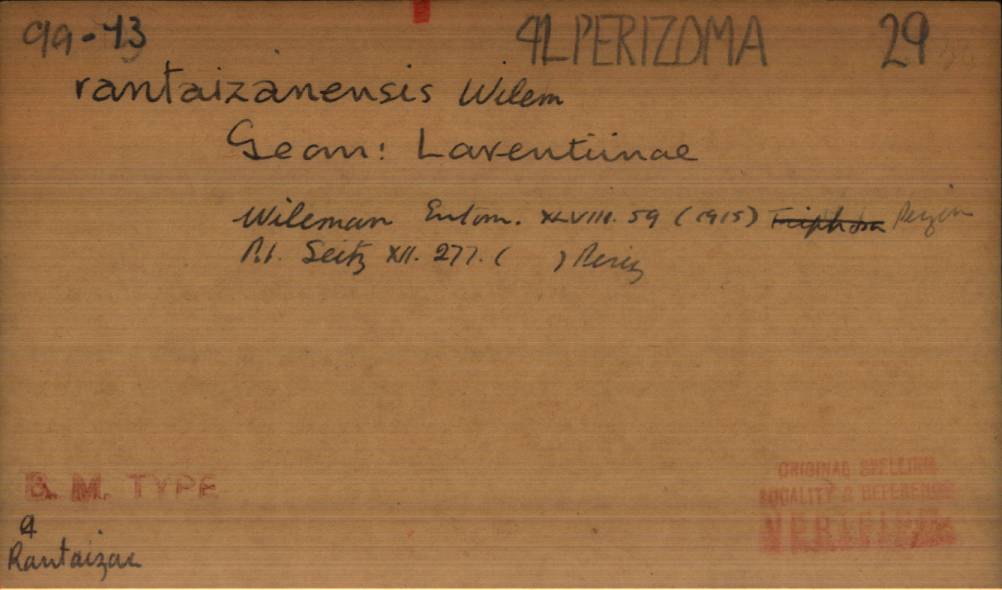 99-13 PERIZOMA 29
rantaizanensis Wilem
Geom: Larentiinae
Wileman Entom. XLVIII. 59 (1915) Triphosa
Seitz XII. 277. ( ) Periz
B. M. TYPE
Rantaizan
ORIGINAL SPELLING
LOCALITY & REFERENCE
VERIFIED